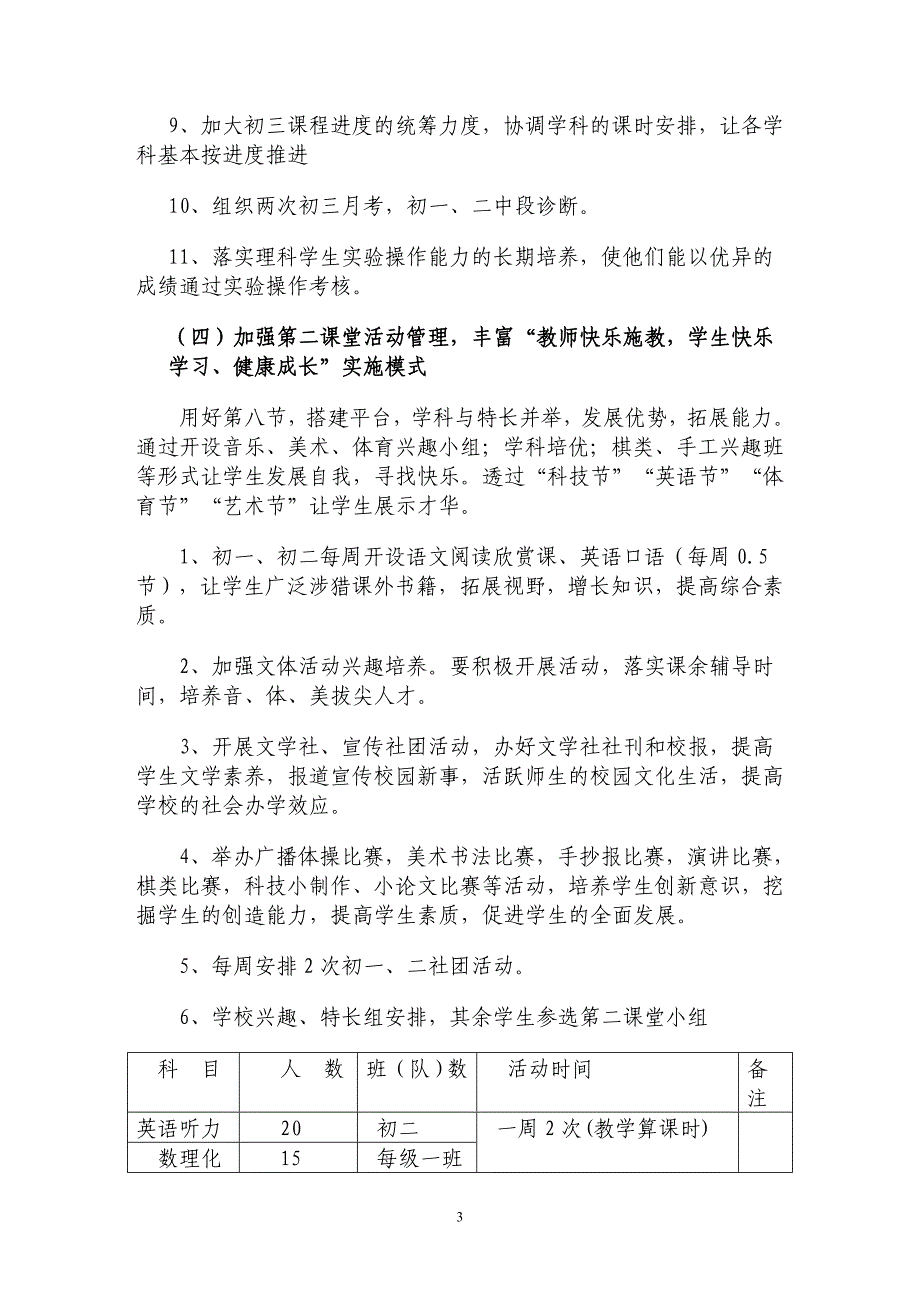 9、加大初三课程进度的统筹力度，协调学科的课时安排，让各学
科基本按进度推进
10、组织两次初三月考，初一、二中段诊断。
11、落实理科学生实验操作能力的长期培养，使他们能以优异的
成绩通过实验操作考核。
（四）加强第二课堂活动管理，丰富“教师快乐施教，学生快乐
学习、健康成长”实施模式
用好第八节，搭建平台，学科与特长并举，发展优势，拓展能力。
通过开设音乐、美术、体育兴趣小组；学科培优；棋类、手工兴趣班
等形式让学生发展自我，寻找快乐。透过“科技节”“英语节”“体
育节”“艺术节”让学生展示才华。
1、初一、初二每周开设语文阅读欣赏课、英语口语（每周0.5
节），让学生广泛涉猎课外书籍，拓展视野，增长知识，提高综合素
质。
2、加强文体活动兴趣培养。要积极开展活动，落实课余辅导时
间，培养音、体、美拔尖人才。
3、开展文学社、宣传社团活动，办好文学社社刊和校报，提高
学生文学素养，报道宣传校园新事，活跃师生的校园文化生活，提高
学校的社会办学效应。
4、举办广播体操比赛，美术书法比赛，手抄报比赛，演讲比赛，
棋类比赛，科技小制作、小论文比赛等活动，培养学生创新意识，挖
掘学生的创造能力，提高学生素质，促进学生的全面发展。
5、每周安排2次初一、二社团活动。
6、学校兴趣、特长组安排，其余学生参选第二课堂小组
科 目 人 数 班（队）数 活动时间 备
注
英语听力 20 初二 一周2次(教学算课时)
数理化 15 每级一班
3